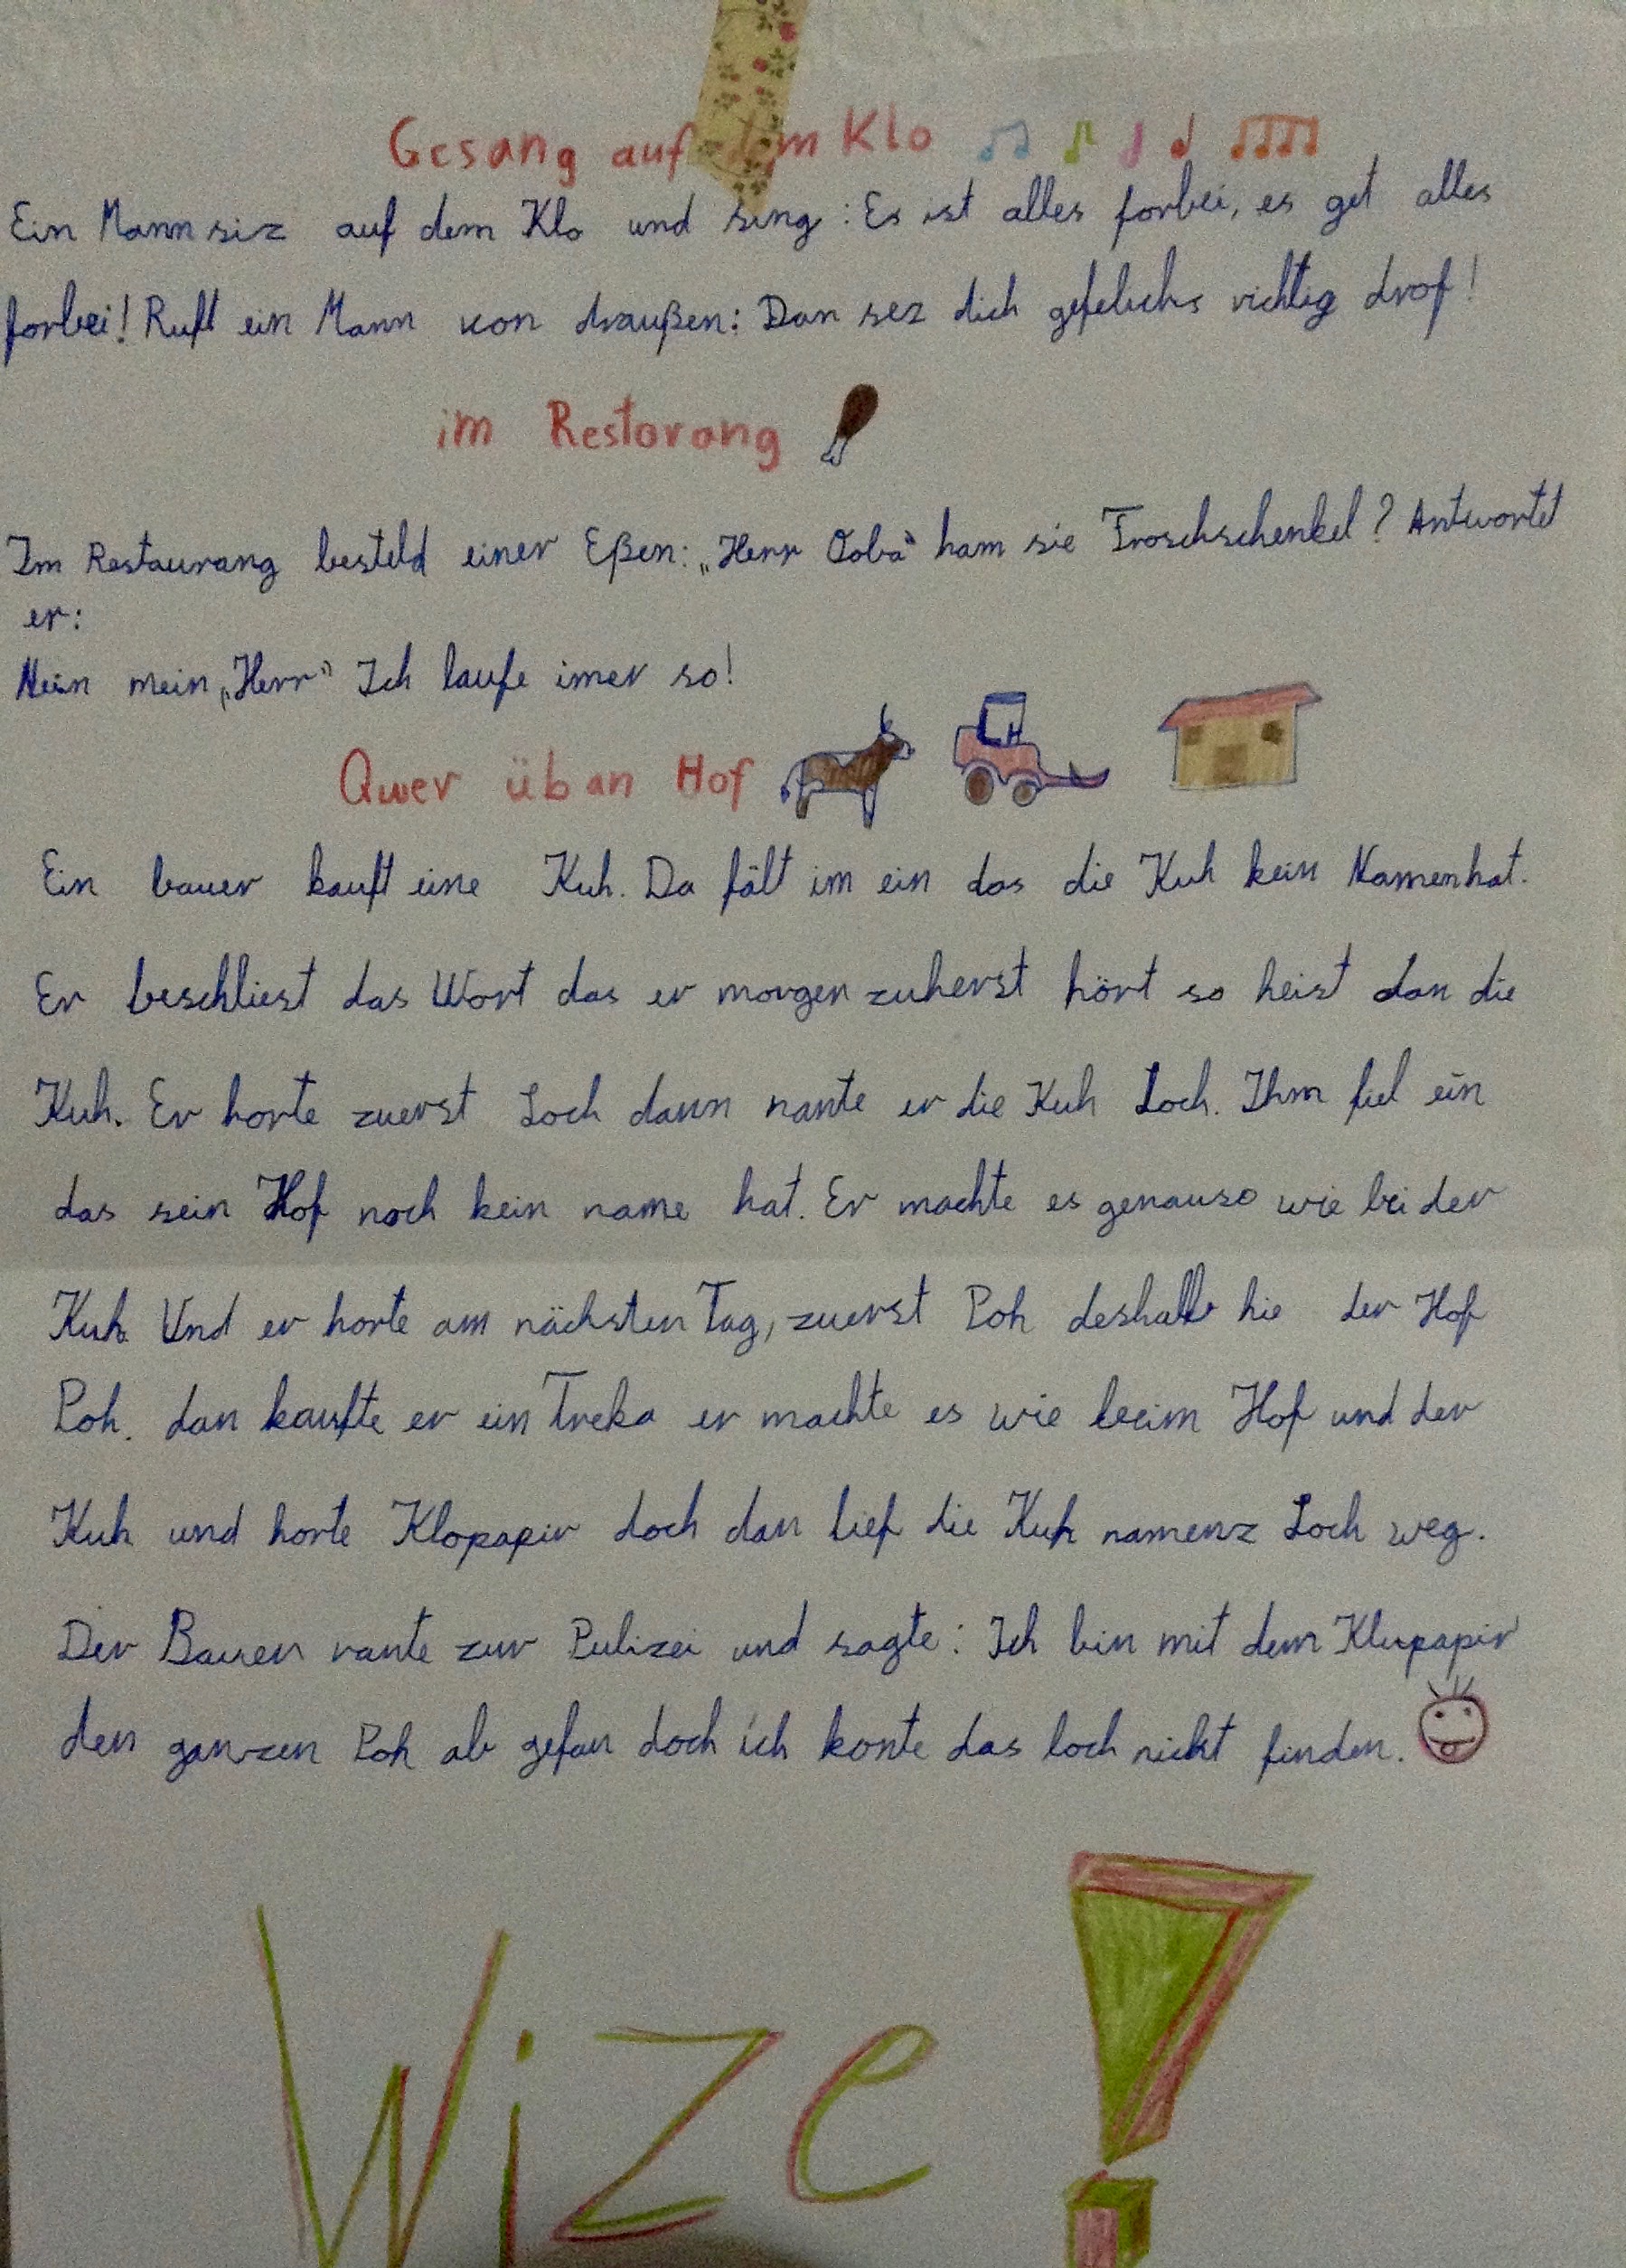 Gesang auf dem Klo
Ein Mann siz auf dem Klo und sing: Es ist alles forbei, es get alles
forbei! Ruft ein Mann von draußen: Dan sez dich gefelichs richtig drof!
im Restorang
Im Restaurang besteld einer Eßen: „Herr Ooba“ ham sie Froschschenkel? Antwortet
er:
Nein mein „Herr“ Ich laufe imer so!
Qwer üban Hof
Ein bauer kauft eine Kuh. Da fält im ein das die Kuh kein Namen hat.
Er beschliest das Wort das er morgen zuherst hört so heist dan die
Kuh. Er horte zuerst Loch dann nante er die Kuh Loch. Ihm fiel ein
das sein Hof noch kein name hat. Er machte es genauso wie bei der
Kuh Und er horte am nächsten Tag, zuerst Poh deshalb hie der Hof
Poh. dan kaufte er ein Treka er machte es wie beim Hof und der
Kuh und horte Klopapir doch dan lief die Kuh namenz Loch weg.
Der Bauer rante zur Pulizei und sagte: Ich bin mit dem Klupapir
den ganzen Poh ab gefan doch ich konte das loch nicht finden.
Wize!